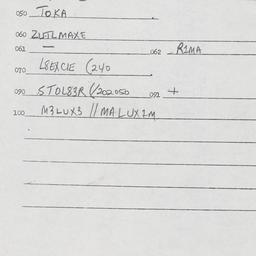 050 TOKA
060 ZUTLMAXE
061 — 062 R1MA
070 L8EXCIE (240
090 STOL83R (/202.050 092 +
100 M3LUX3 // MALUX1M